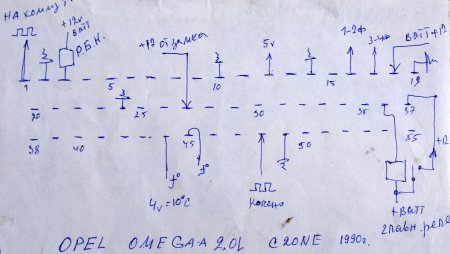 НА КОММУ
+12v
ВАТТ
Р.Б.Н.
+12 от замка
5v
1-2ф
3-4ф
ВАТТ +12
1 5 10 15 19
20 25 30 35 37
38 40 45 50 55
t° t°
4v=10°C
Колено
+12
+ ВАТТ
главн. реле
OPEL OMEGA-A 2,0L C20NE 1990г.